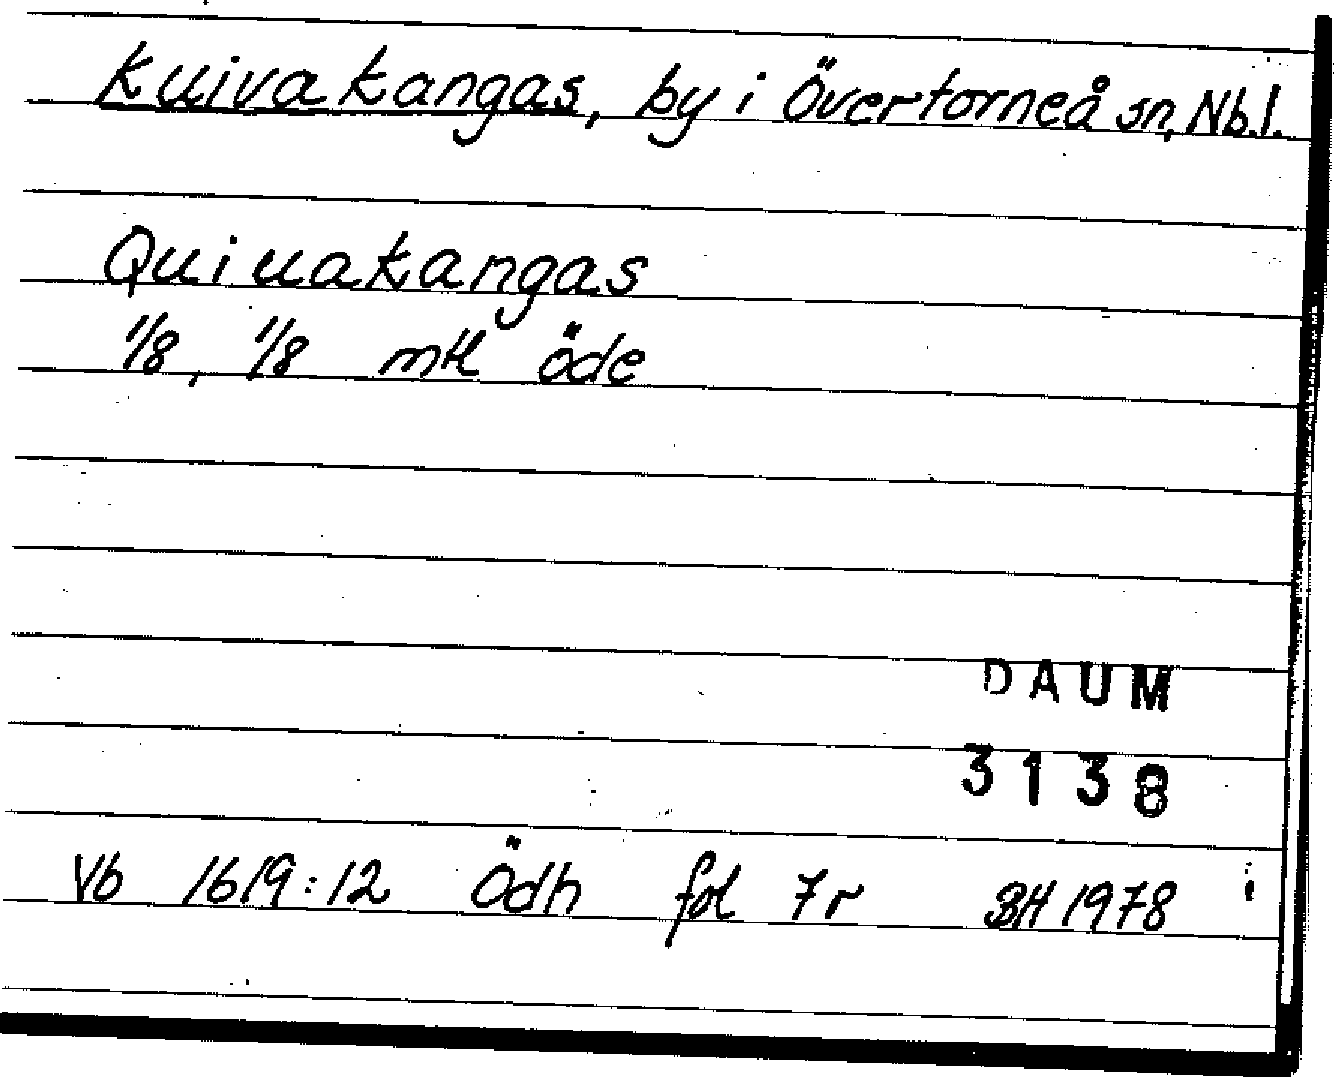 Kuivakangas, by i Övertorneå sn, Nb.l.
Quiuakangas
1/8, 1/8 mtl öde
DAUM
3138
Vb 1619:12 Ödh fol 7r BH 1978